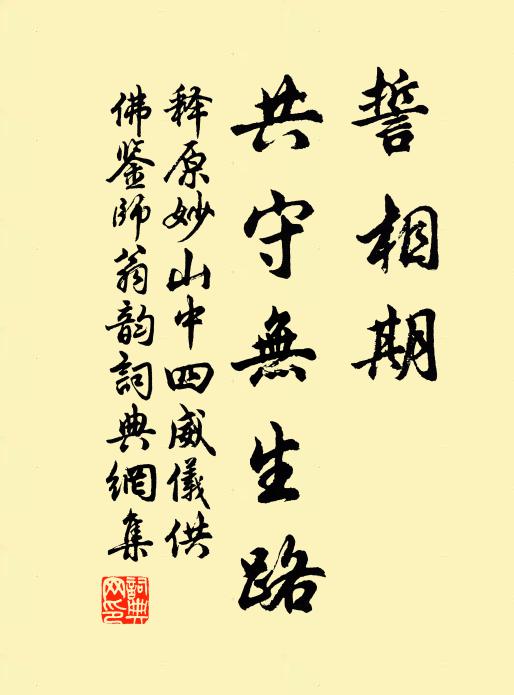 誓相期
共守無生路
释原妙山中四威儀供
佛鉴師翁韵詞典網集